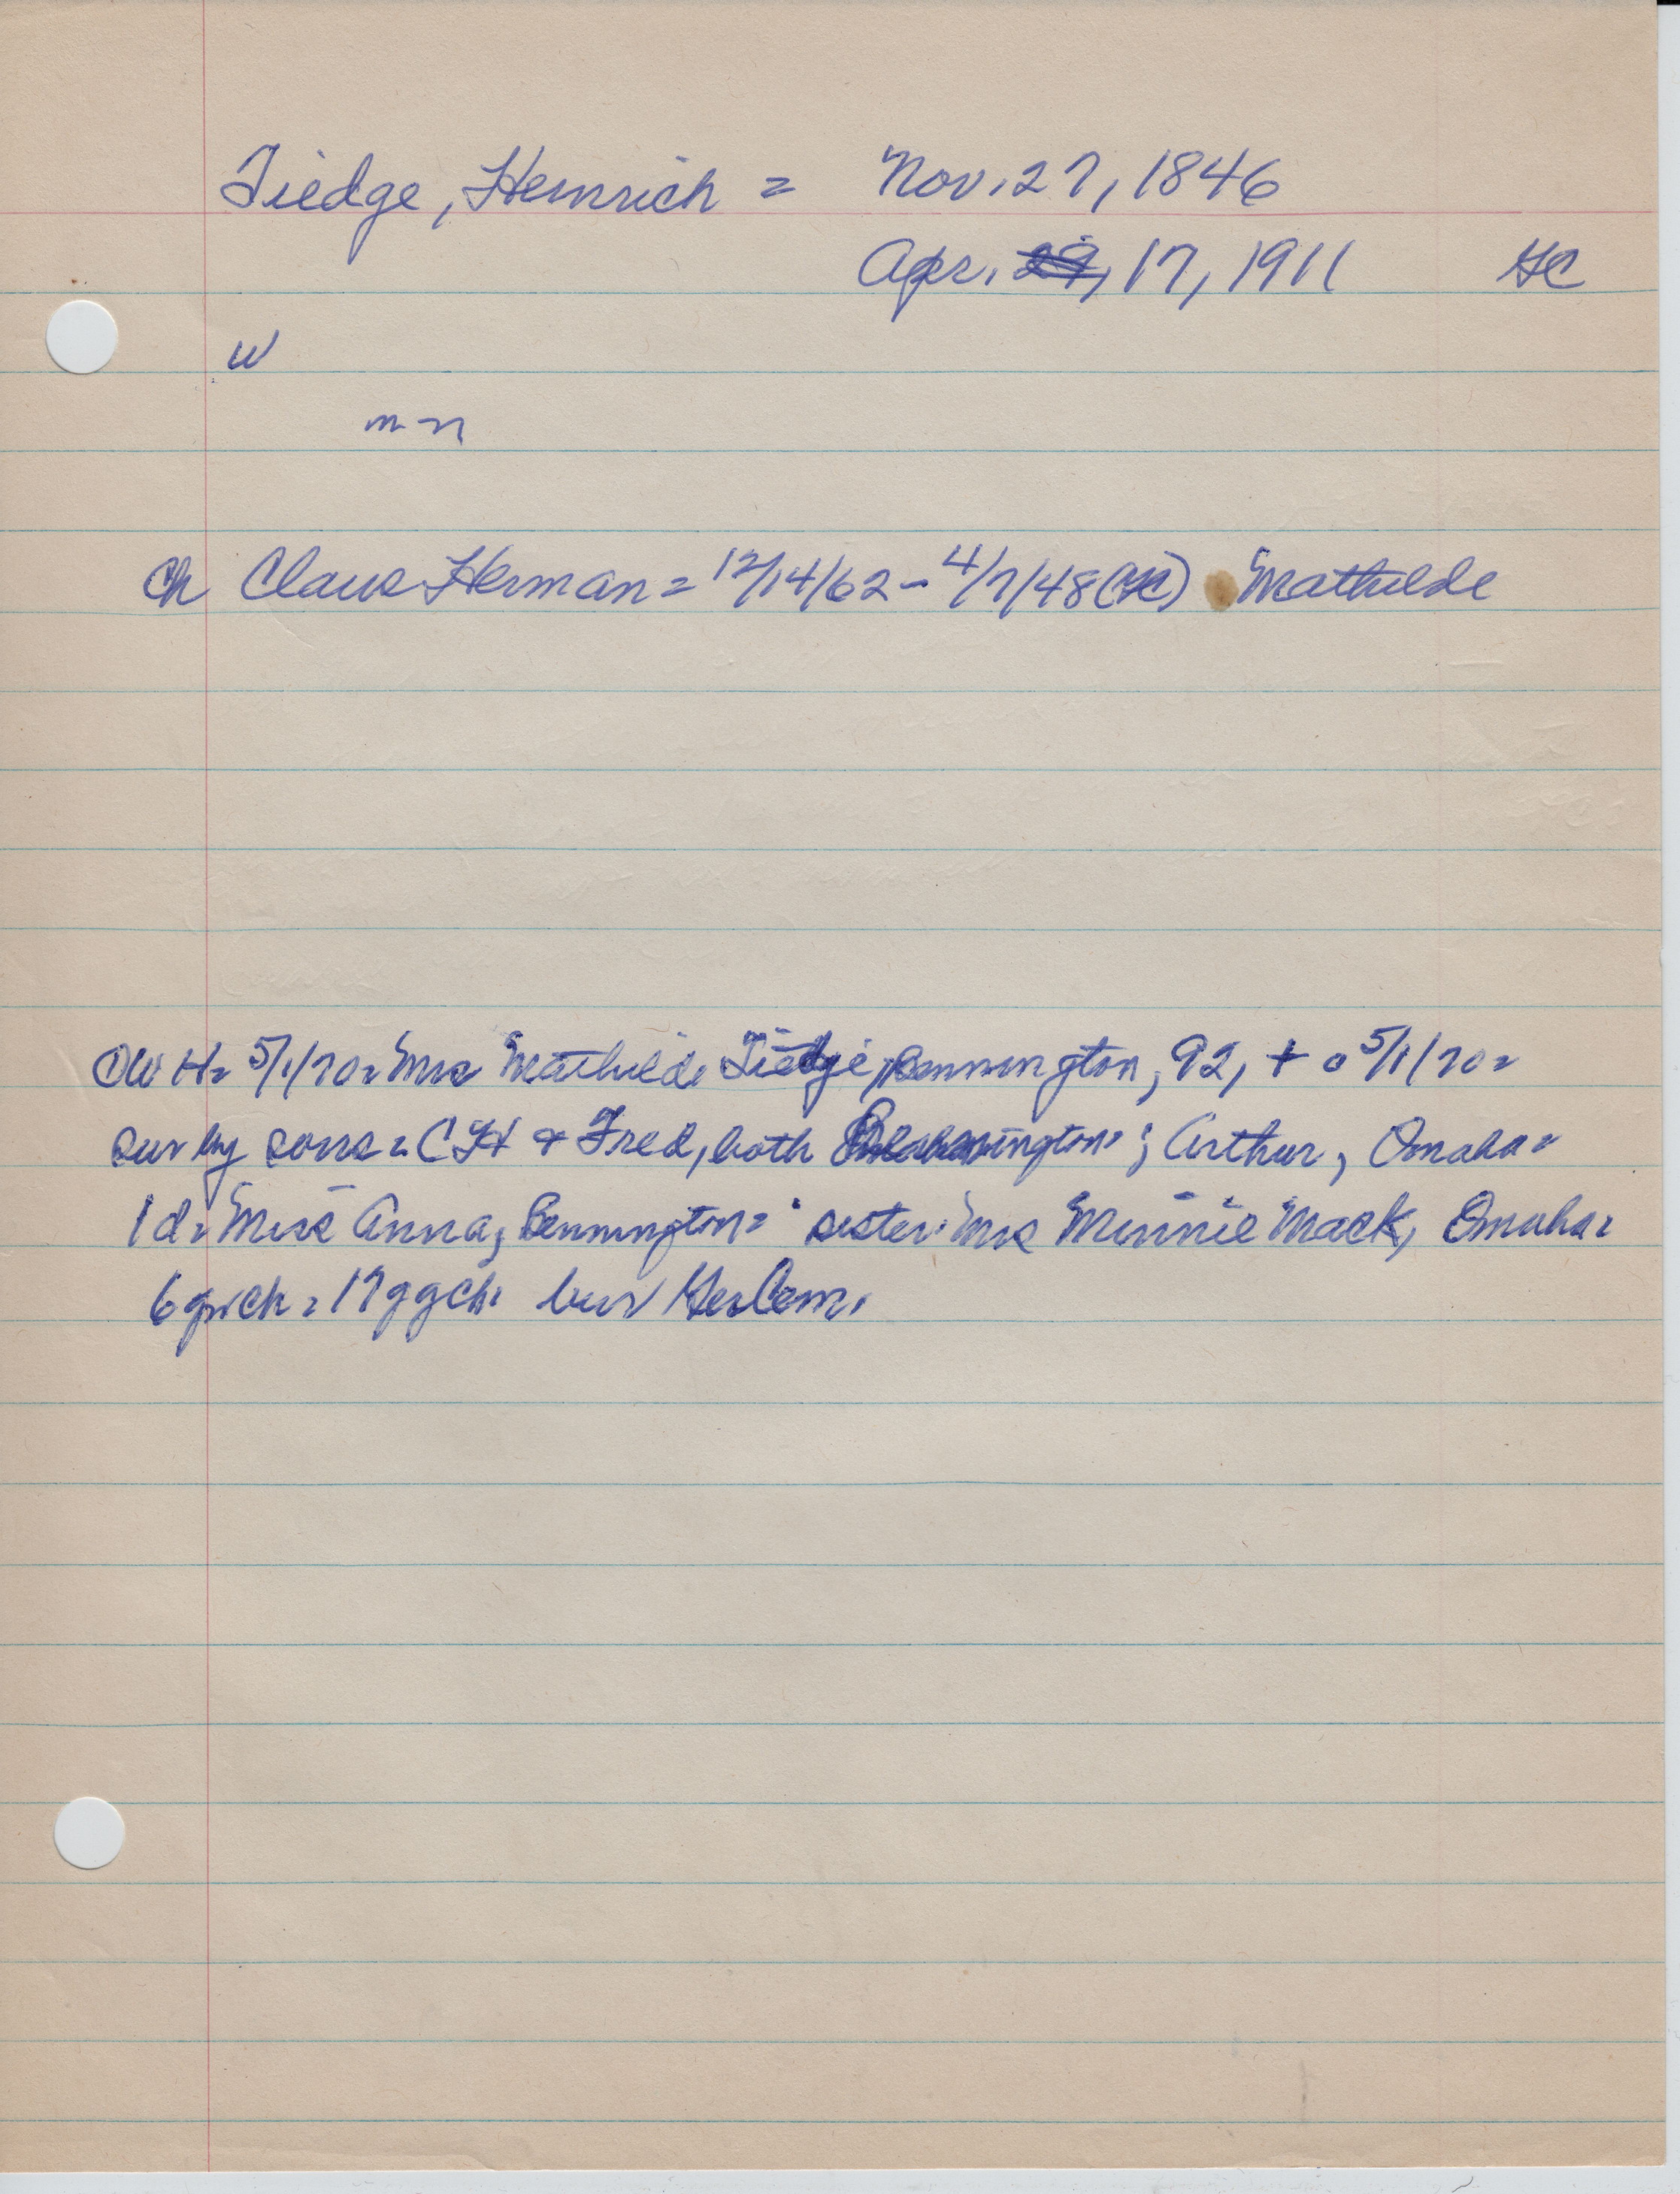 Tiedge, Heinrich = Nov. 27, 1846
Apr. 17, 1911 GC
w
m-n
Ch Claus Herman = 12/14/62 - 4/7/48 (GC) Mathilde
OWH = 5/1/70 = Mrs Mathilde Tiedje, Bennington, 92, + o 5/1/70 =
sur by sons = CH & Fred, both Bennington; Arthur, Omaha =
1 d = Miss Anna, Bennington = sister = Mrs Minnie Mack, Omaha =
6 grch = 17 ggch. bur Ger Cem.